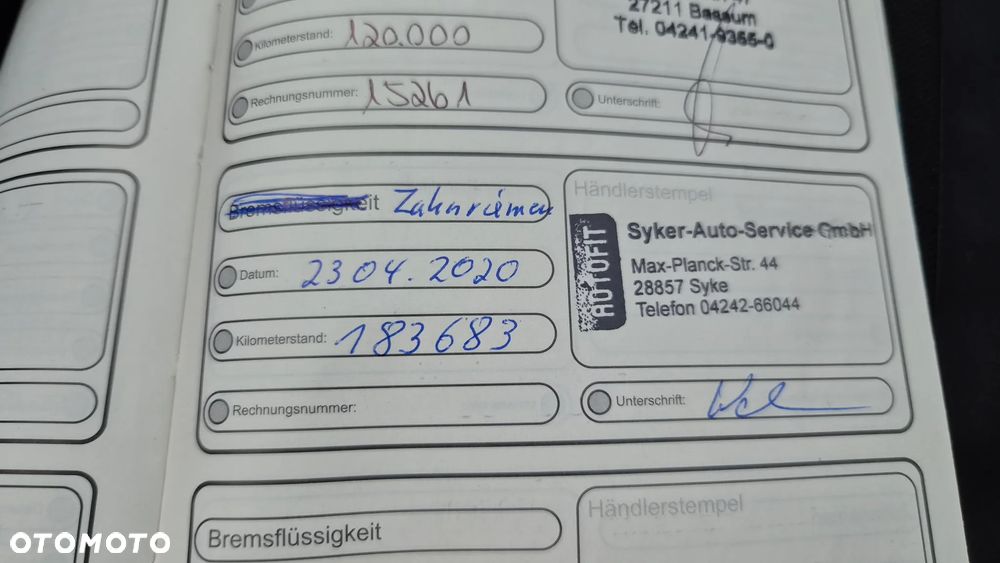 27211 Bassum
Tel. 04241-9366-0
Kilometerstand: 120.000
Rechnungsnummer: 15261
Unterschrift:
Bremsflüssigkeit Zahnriemen
Händlerstempel
AUTOFIT
Syker-Auto-Service GmbH
Max-Planck-Str. 44
28857 Syke
Telefon 04242-66044
Datum: 23 04. 2020
Kilometerstand: 183683
Rechnungsnummer:
Unterschrift:
Bremsflüssigkeit
Händlerstempel
OTOMOTO